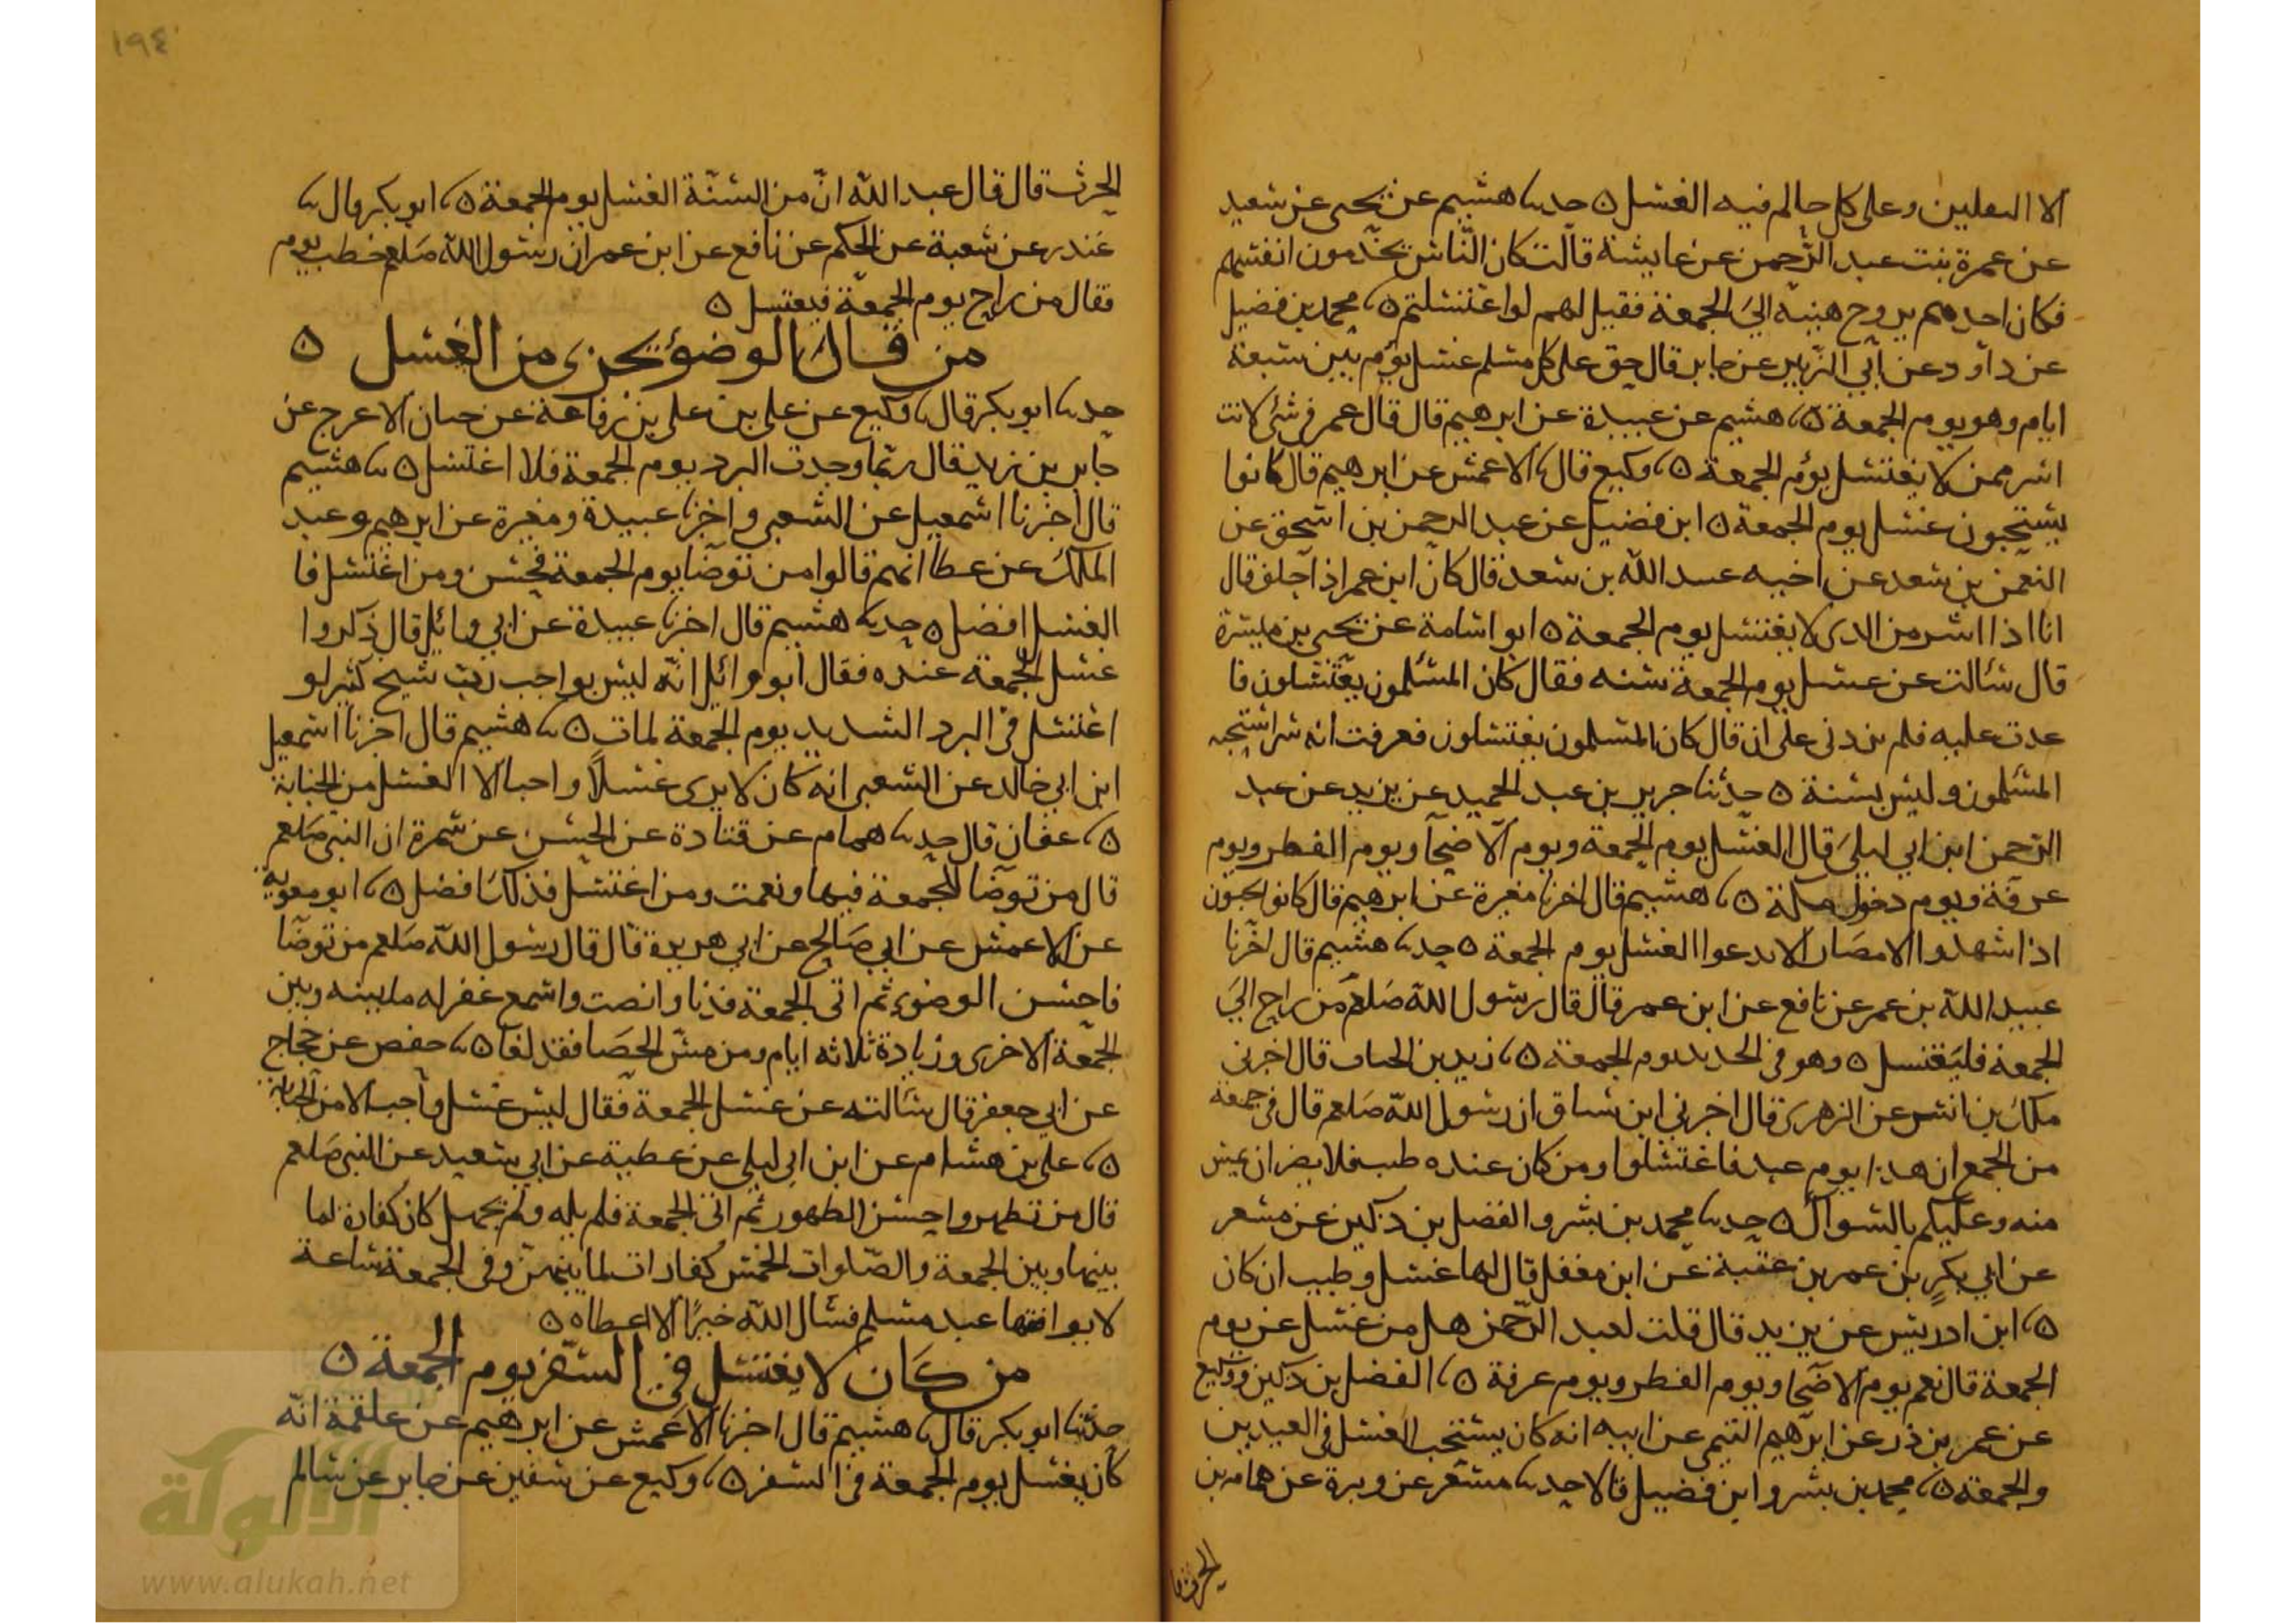 الا النعلين وعلى كل حالم فيه الغسل ٥ حدثنا هشيم عن يحيى عن سعيد
عن عمرة بنت عبد الرحمن عن عايشة قالت كان الناس يخدمون انفسهم
فكان احدهم يروح هيئته الى الجمعة فقيل لهم لو اغتسلتم ٥ محمد بن فضيل
عن داود عن ابي الزبير عن جابر قال حق على كل مسلم غسل يوم بين سبعة
ايام وهو يوم الجمعة ٥ هشيم عن عبيدة عن ابرهيم قال قال عمر في شئ لانت
اشر ممن لا يغتسل يوم الجمعة ٥ وكيع قال الاعمش عن ابرهيم قال كانوا
يستحبون غسل يوم الجمعة ٥ ابن فضيل عن عبد الرحمن بن اسحق عن
النعمن بن سعد عن اخيه عبد الله بن سعد قال كان ابن عمر اذا حلف قال
انا اذا اشر من الذى لا يغتسل يوم الجمعة ٥ ابو اسامة عن يحيى بن ميسرة
قال سالت عن غسل يوم الجمعة سنه فقال كان المسلمون يغتسلون فا
عدت عليه فلم يزدنى على ان قال كان المسلمون يغتسلون فعرفت انه شر استحبه
المسلمون وليس بسنة ٥ حدثنا جرير بن عبد الحميد عن يزيد عن عبد
الرحمن ابن ابي ليلى قال الغسل يوم الجمعة ويوم الاضحا ويوم الفطر ويوم
عرفة ويوم دخول مكة ٥ هشيم قال اخبرنا مغيرة عن ابرهيم قال كانوا يحبون
اذا شهدوا الامصار الا يدعوا الغسل يوم الجمعة ٥ حدثنا هشيم قال اخبرنا
عبيد الله بن عمر عن نافع عن ابن عمر قال قال رسول الله صلعم من راح الى
الجمعة فليغتسل ٥ وهو في الحديد يوم الجمعة ٥ زيد بن الحباب قال اخبرني
ملك بن انس عن الزهرى قال اخبرني ابن سباق ان رسول الله صلعم قال في جمعة
من الجمع ان هذا يوم عيد فاغتسلوا ومن كان عنده طيب فلا يضر ان يمس
منه وعليكم بالسواك ٥ حدثنا محمد بن بشر والفضل بن دكين عن مسعر
عن ابي بكر بن عمر بن عتبة عن ابن مغفل قال لها غسل وطيب ان كان
٥ ابن ادريس عن يزيد قال قلت لعبد الرحمن هل من غسل عن يوم
الجمعة قال نعم يوم الاضحا ويوم الفطر ويوم عرفة ٥ الفضل بن دكين ووكيع
عن عمر بن ذر عن ابرهيم التيمي عن ابيه انه كان يستحب الغسل في العيدين
والجمعة ٥ محمد بن بشر وابن فضيل قالا حدثنا مسعر عن وبرة عن همام بن
١٩٤
الحرث قال قال عبد الله ان من السنة الغسل يوم الجمعة ٥ ابو بكر قال
غندر عن شعبة عن الحكم عن نافع عن ابن عمر ان رسول الله صلعم خطب يوم
فقال من راح يوم الجمعة فيغتسل ٥
من قال الوضوء يجزى من الغسل ٥
حدثنا ابو بكر قال وكيع عن علي بن علي بن رفاعة عن حبان الاعرج عن
جابر بن زيد قال ربما وجدت البرد يوم الجمعة فلا اغتسل ٥ هشيم
قال اخبرنا اسمعيل عن الشعبي واخبرنا عبيدة ومغيرة عن ابرهيم وعبد
الملك عن عطا انهم قالوا من توضا يوم الجمعة فحسن ومن اغتسل فا
الغسل افضل ٥ حدثنا هشيم قال اخبرنا عبيدة عن ابي وائل قال ذكروا
غسل الجمعة عنده فقال ابو وائل انه ليس بواجب رب شيخ كبير لو
اغتسل في البرد الشديد يوم الجمعة لمات ٥ هشيم قال اخبرنا اسمعيل
ابن ابي خالد عن الشعبي انه كان لا يرى غسلا واجبا الا الغسل من الجنابة
٥ عفان قال حدثنا همام عن قتادة عن الحسن عن سمرة ان النبي صلعم
قال من توضا للجمعة فبها ونعمت ومن اغتسل فذلك افضل ٥ ابو معوية
عن الاعمش عن ابي صالح عن ابي هريرة قال قال رسول الله صلعم من توضا
فاحسن الوضوء ثم اتى الجمعة فدنا وانصت واسمع غفر له ما بينه وبين
الجمعة الاخرى وزيادة ثلاثه ايام ومن مس الحصا فقد لغا ٥ حفص عن حجاج
عن ابي جعفر قال سالته عن غسل الجمعة فقال ليس غسل واجب الا من الجنابة
٥ علي بن هشام عن ابن ابي ليلى عن عطية عن ابي سعيد عن النبي صلعم
قال من تطهر واحسن الطهور ثم اتى الجمعة فلم يله ولم يجهل كان كفارة لما
بينها وبين الجمعة والصلوات الخمس كفارات لما بينهن وفي الجمعة ساعة
لا يوافقها عبد مسلم فسال الله خيرا الا اعطاه ٥
من كان لا يغتسل في السفر يوم الجمعة ٥
حدثنا ابو بكر قال هشيم قال اخبرنا الاعمش عن ابرهيم عن علقمة انه
كان يغتسل يوم الجمعة في السفر ٥ وكيع عن سفين عن جابر عن سالم
الألوكة
www.alukah.net